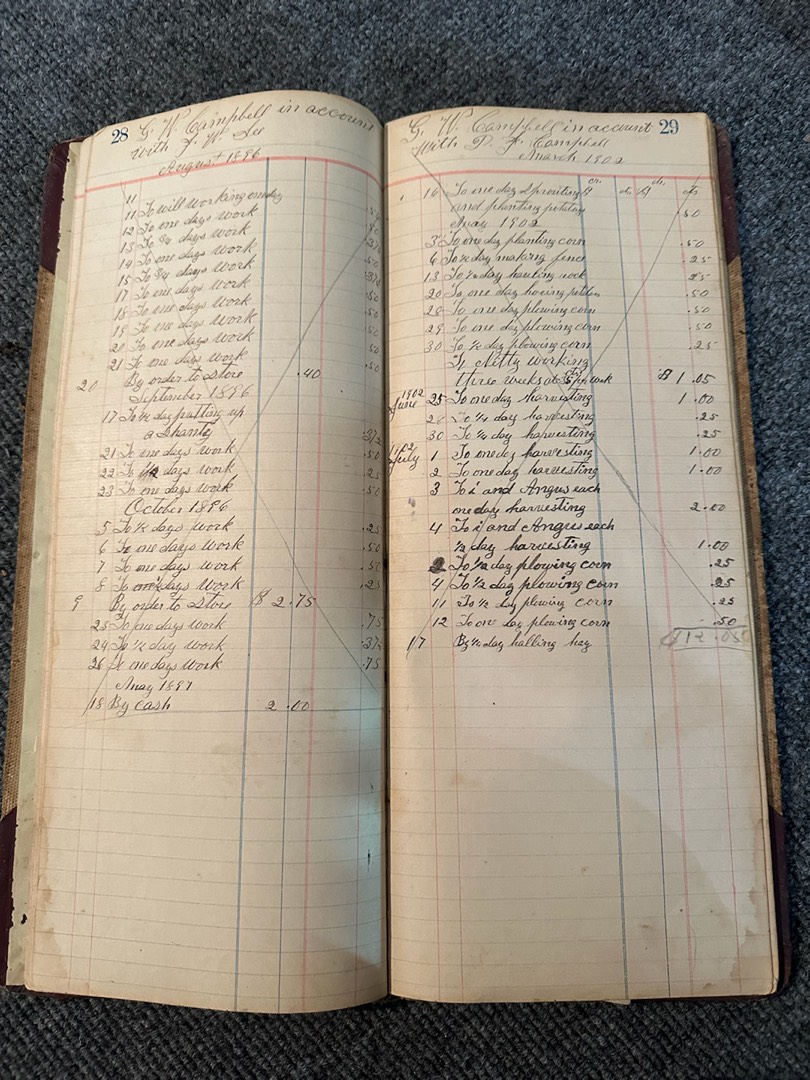 28 G. W. Campbell in account
with J. W. Lee
August 1896
11 To will working one day
11 To one days work .50
12 To 3/4 days work
13 To one days work
14 To 3/4 days work
15 To one days work .50
17 To one days work .50
18 To one days work .50
19 To one days work .50
20 To one days work .50
21 To one days work .50
20 By order to Store .40
September 1896
17 To 3/4 day putting up
a Shanty .37½
21 To one days work .50
22 To ½ days work .25
23 To one days work .50
October 1896
5 To ½ days work .25
6 To one days work .50
7 To one days work .50
8 To days work .25
9 By order to Store $ 2.75
23 To one days work .75
24 To ½ day work .37½
26 To one days work .75
May 1897
18 By cash 2.00
G. W. Campbell in account 29
with D. F. Campbell
March 1902
cr. dr.
cts $ cts
16 To one day Sprouting
and planting potatoes .50
May 1902
3 To one day planting corn .50
6 To ½ day making fence .25
13 To ½ day hauling rock .25
20 To one day hoeing potatoes .50
28 To one day plowing corn .50
29 To one day plowing corn .50
30 To ½ day plowing corn .25
Netty working
three weeks at 35 cts per week $ 1.05
1902
June 25 To one day harvesting 1.00
28 To ¼ day harvesting .25
30 To ¼ day harvesting .25
1902
July 1 To one day harvesting 1.00
2 To one day harvesting 1.00
3 To i and Angus each
one day harvesting 2.00
4 To i and Angus each
½ day harvesting 1.00
2 To ½ day plowing corn .25
4 To ½ day plowing corn .25
11 To ½ day plowing corn .25
12 To one day plowing corn .50
17 By ½ day halling hay $12.05